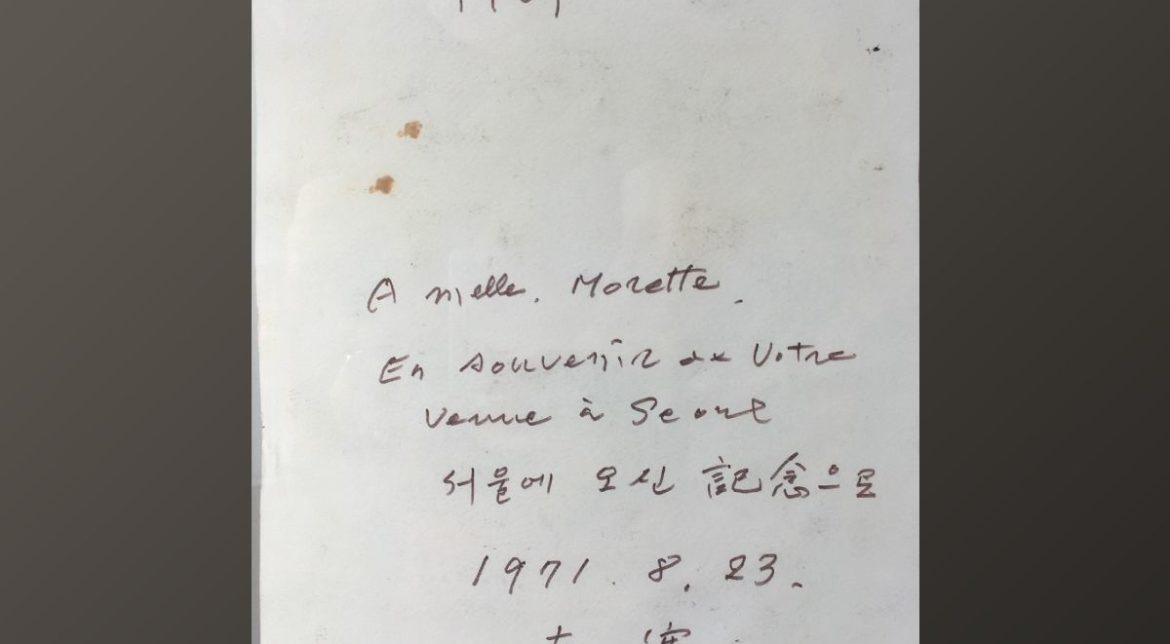 A Melle. Morette.
En souvenir de Votre
venue à Seoul
서울에 오신 記念으로
1971. 8. 23.